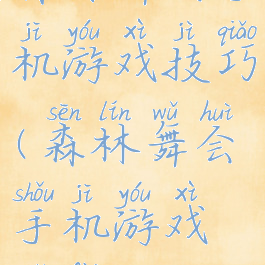 jī yóu xì jì qiǎo
机游戏技巧
sēn lín wǔ huì
(森林舞会
shǒu jī yóu xì
手机游戏